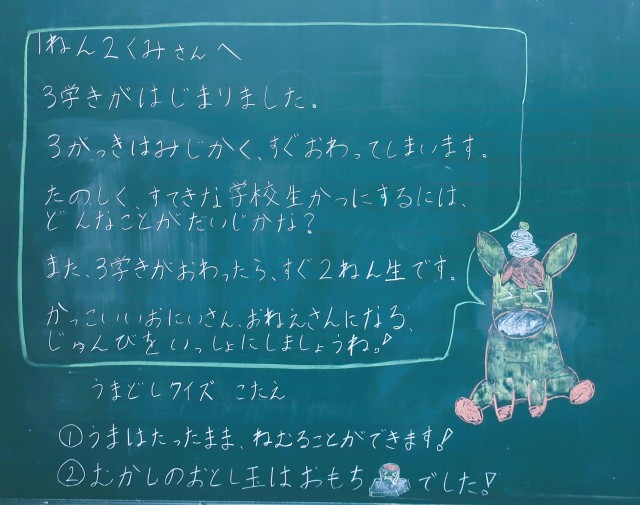 1ねん2くみさんへ
3学きがはじまりました。
3がっきはみじかく、すぐおわってしまいます。
たのしく、すてきな学校生かつにするには、
どんなことがだいじかな?
また、3学きがおわったら、すぐ2ねん生です。
かっこいいおにいさん、おねえさんになる、
じゅんびをいっしょにしましょうね。!
うまどしクイズ こたえ
①うまはたったまま、ねむることができます!
②むかしのおとし玉はおもち でした!